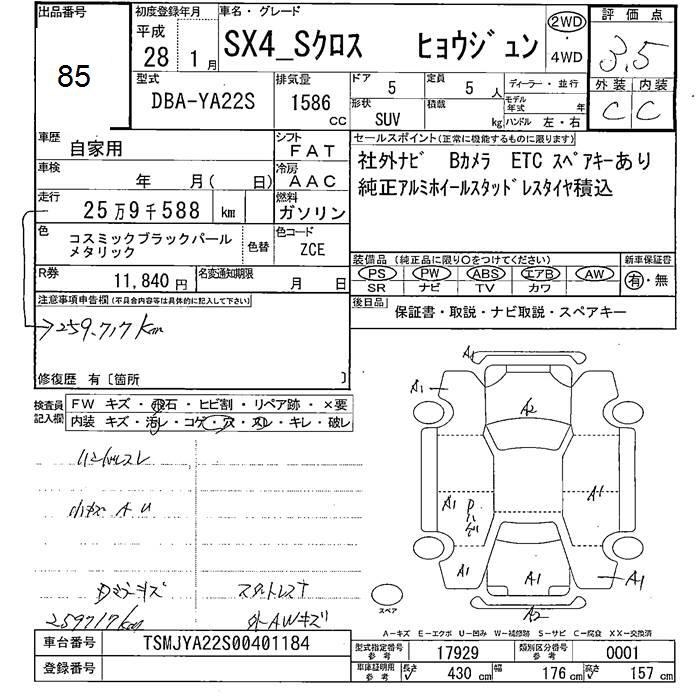 出品番号
85
初度登録年月
平成
28 1月
車名・グレード
SX4_Sクロス ヒョウジュン
2WD
・
4WD
評価点
3.5
外装 内装
C C
型式
DBA-YA22S
排気量
1586 cc
ドア 5
定員 5 人
形状 SUV
積載 kg
ディーラー・並行
モデル年式 年
ハンドル 左・右
車歴
自家用
シフト
FAT
車検
年 月( 日)
冷房
AAC
走行
25万9千588 km
燃料
ガソリン
色
コスミックブラックパールメタリック
色替
色コード
ZCE
R券
11,840円
名変通知期限
月 日
セールスポイント(正常に機能するものに限ります)
社外ナビ Bカメラ ETC スペアキーあり
純正アルミホイールスタッドレスタイヤ積込
装備品(純正品に限り○をつけてください)
新車保証書
PS PW ABS エアB AW
有・無
SR ナビ TV カワ
後日品
保証書・取説・ナビ取説・スペアキー
注意事項申告欄(不具合内容等は具体的に記入して下さい)
259.717km
修復歴 有〔箇所 〕
検査員記入欄
FW キズ・飛石・ヒビ割・リペア跡・×要
内装 キズ・汚レ・コゲ・穴・スレ・キレ・破レ
ハンドルスレ
小キズ A U
Dミラーキズ
259717km
スタットレス
外AWキズ
A1
A1
A2
A1
A1
A1
A1
A1
A2
スペア
A-キズ E-エクボ U-凹み W-補修跡 S-サビ C-腐食 XX-交換済
車台番号
TSMJYA22S00401184
登録番号
型式指定番号 参考
17929
類別区分番号 参考
0001
車庫証明用 参考
長さ 430 cm
幅 176 cm
高さ 157 cm